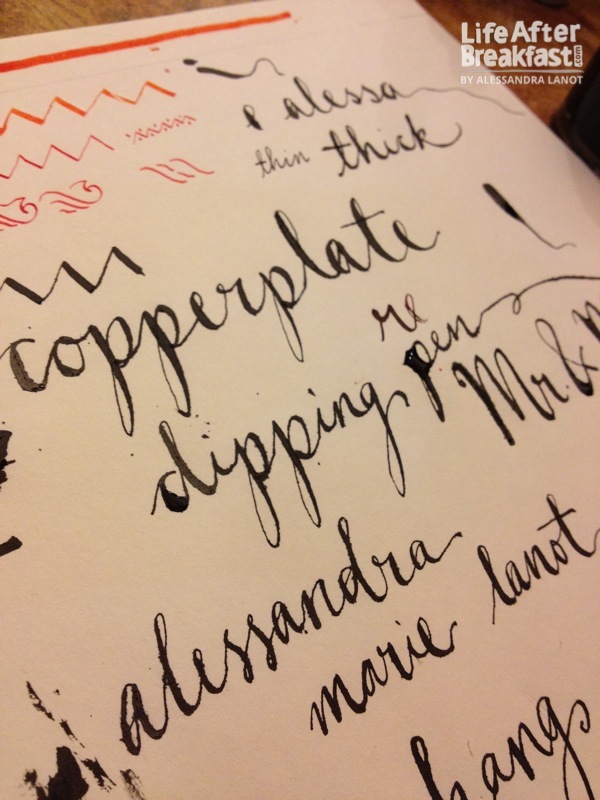 LifeAfter
Breakfast.com
BY ALESSANDRA LANOT
alessa
thin thick
copperplate
re
dipping pen
Mr &
alessandra
marie lanot
hang